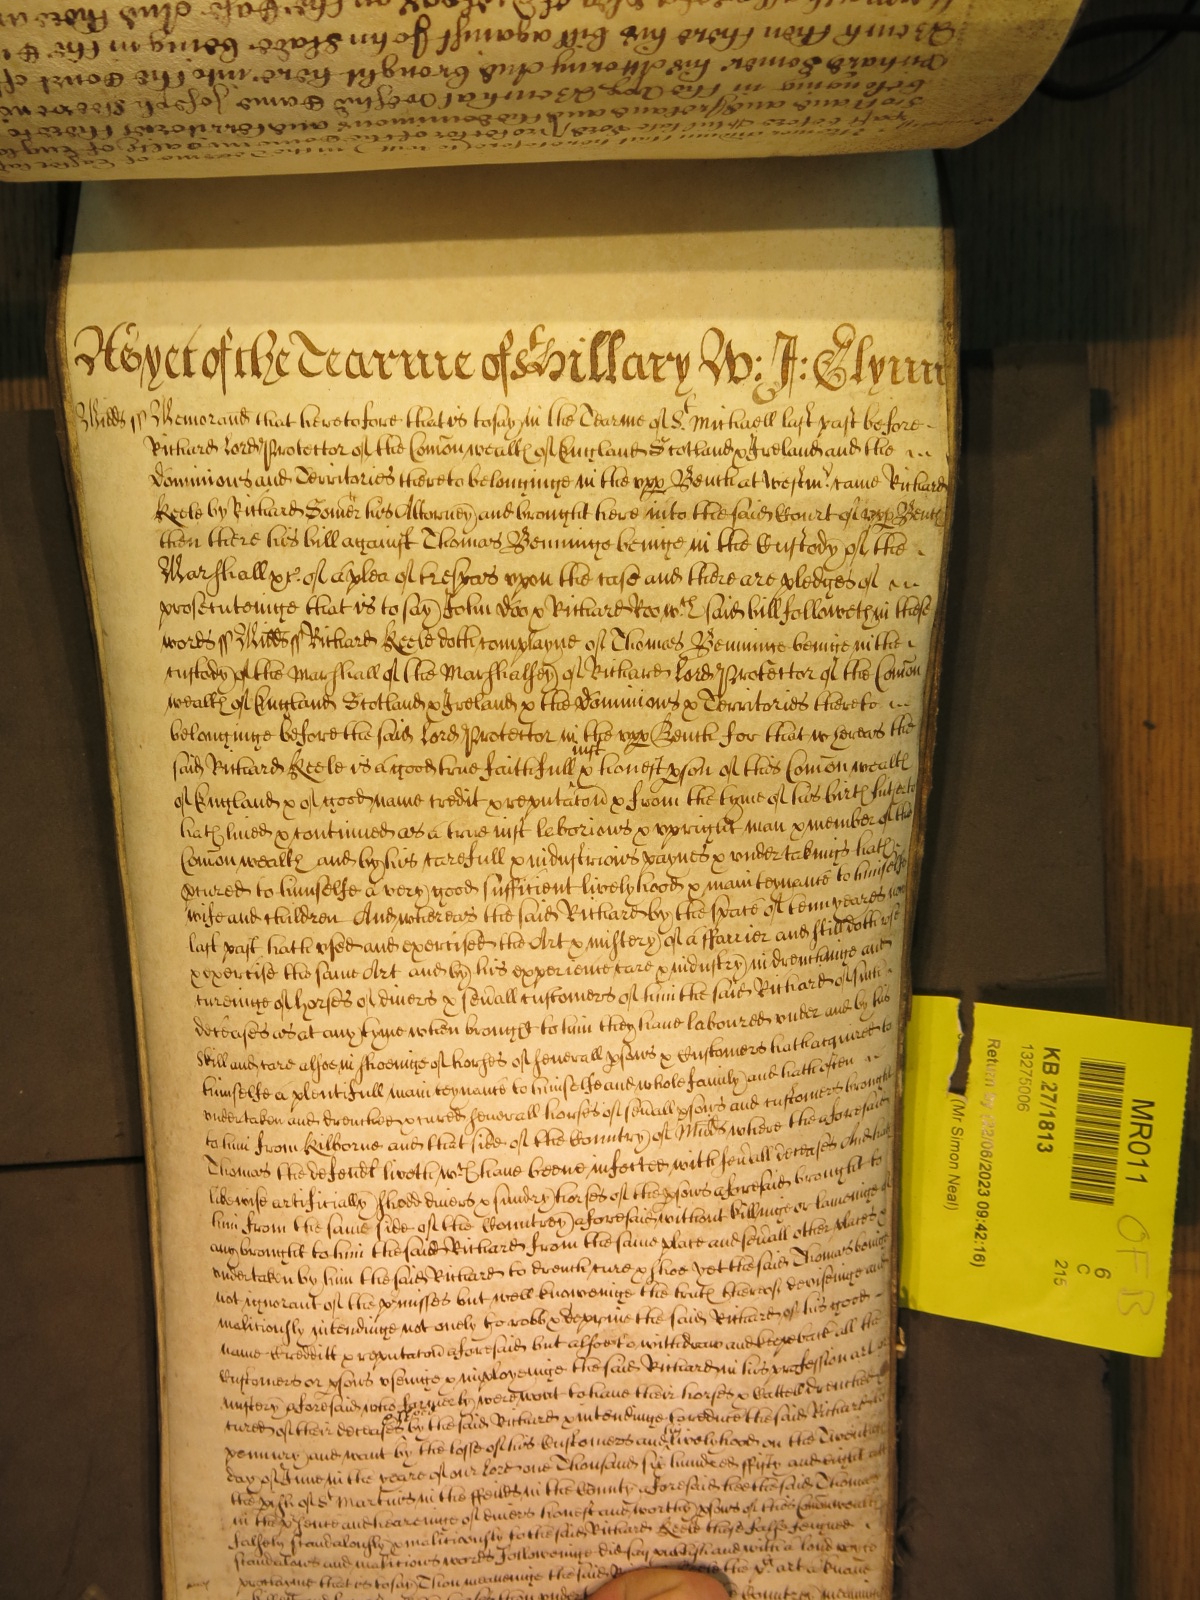 As yet of the Tearme of St Hillary W: J: Glynn
Midds ss Memorand that heretofore that is to say in the Tearme of St Michaell last past before
Richard Lord Protector of the Comon wealth of England Scotland & Ireland and the
dominions and Territories thereto belonginge in the vpp Bench at Westmr. came Richard
Keele by Richard Somer his Attorney and brought here into the said Court of vpp Bench
then there his bill against Thomas Benninge beinge in the Custody of the
Marshall &c. of a plea of trespas vpon the case and there are pledges of
prosecuteinge that is to say John Doo & Richard Roo wch said bill followeth in these
words ss Midds ss Richard Keele doth complayne of Thomas Benninge beinge in the
custody of the Marshall of the Marshalsey of Richard Lord Protector of the Comon
wealth of England Scotland & Ireland & the dominions & Territories thereto
belonginge before the said Lord Protector in the vpp Bench for that whereas the
said Richard Keele is a good true faithfull just & honest pson of this Comon wealth
of England & of good name credit & reputacon & from the tyme of his birth hitherto
hath lived & continued as a true just laborious & vpright man & member of this
Comon wealth and by his carefull & industrious paynes & vndertakings hath
pcured to himselfe a very good sufficient livelyhood & maintenance to himselfe
wife and children And whereas the said Richard by the space of tenn yeares now
last past hath vsed and exercised the Art & mistery of a ffarrier and still doth vse
& exercise the same Art and by his experience care & industry in drenchinge and
cureinge of horses of divers & sevall customers of him the said Richard of such
deceases as at any tyme when brought to him they have laboured vnder and by his
skill and care alsoe in shoeinge of horses of severall psons & Customers hath acquired to
himselfe a plentifull maintenance to himselfe and whole family and hath often
vndertaken and drenched & cured severall horses of sevall psons and customers brought
to him from Kilborne and that side of the Country of Midds where the aforesaid
Thomas the defendt liveth wch have beene infected with sevall deceases And hath
likewise artificially shoed divers & sundry horses of the psons aforesaid brought to
him from the same side of the Countrey aforesaid without killinge or lameinge of
any brought to him the said Richard from the same place and sevall other places &
vndertaken by him the said Richard to drench cure & shoe yet the said Thomas beinge
not ignorant of the pmisses but well knoweinge the truth thereof deviseinge and
malitiously intendinge not onely to robb & deprive the said Richard of his good
name Creditt & reputacon aforesaid but alsoe to withdraw and keepe back all the
Customers or psons vseinge & imployeinge the said Richard in his profession art or
mistery aforesaid who formerly were wont to have their horses & Cattell drenched
cured of their deceases by the said Richard & intendinge to reduce the said Richard to
penury and want by the losse of his Customers and livelyhood on the Twentieth
day of June in the yeare of our Lord one Thousand six hundred ffifty and eight att
the pish of St Martins in the ffeilds in the County aforesaid hee the said Thomas
in the psence and heareinge of divers honest and worthy psons of this Comon wealth
falsely scandalously & malitiously to the said Richard Keele these false feigned
scandalous and malitious words followeinge did say publish and with a loud voyce
proclayme that is to say Thou meaneinge the said the pt. art a knave
MR011
6
C
215
KB 27/1813
13275006
Return by 22/06/2023 09:42:16)
(Mr Simon Neal)
OF B